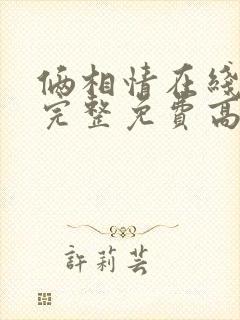 俩相情在綫
完整免費高
許莉芸